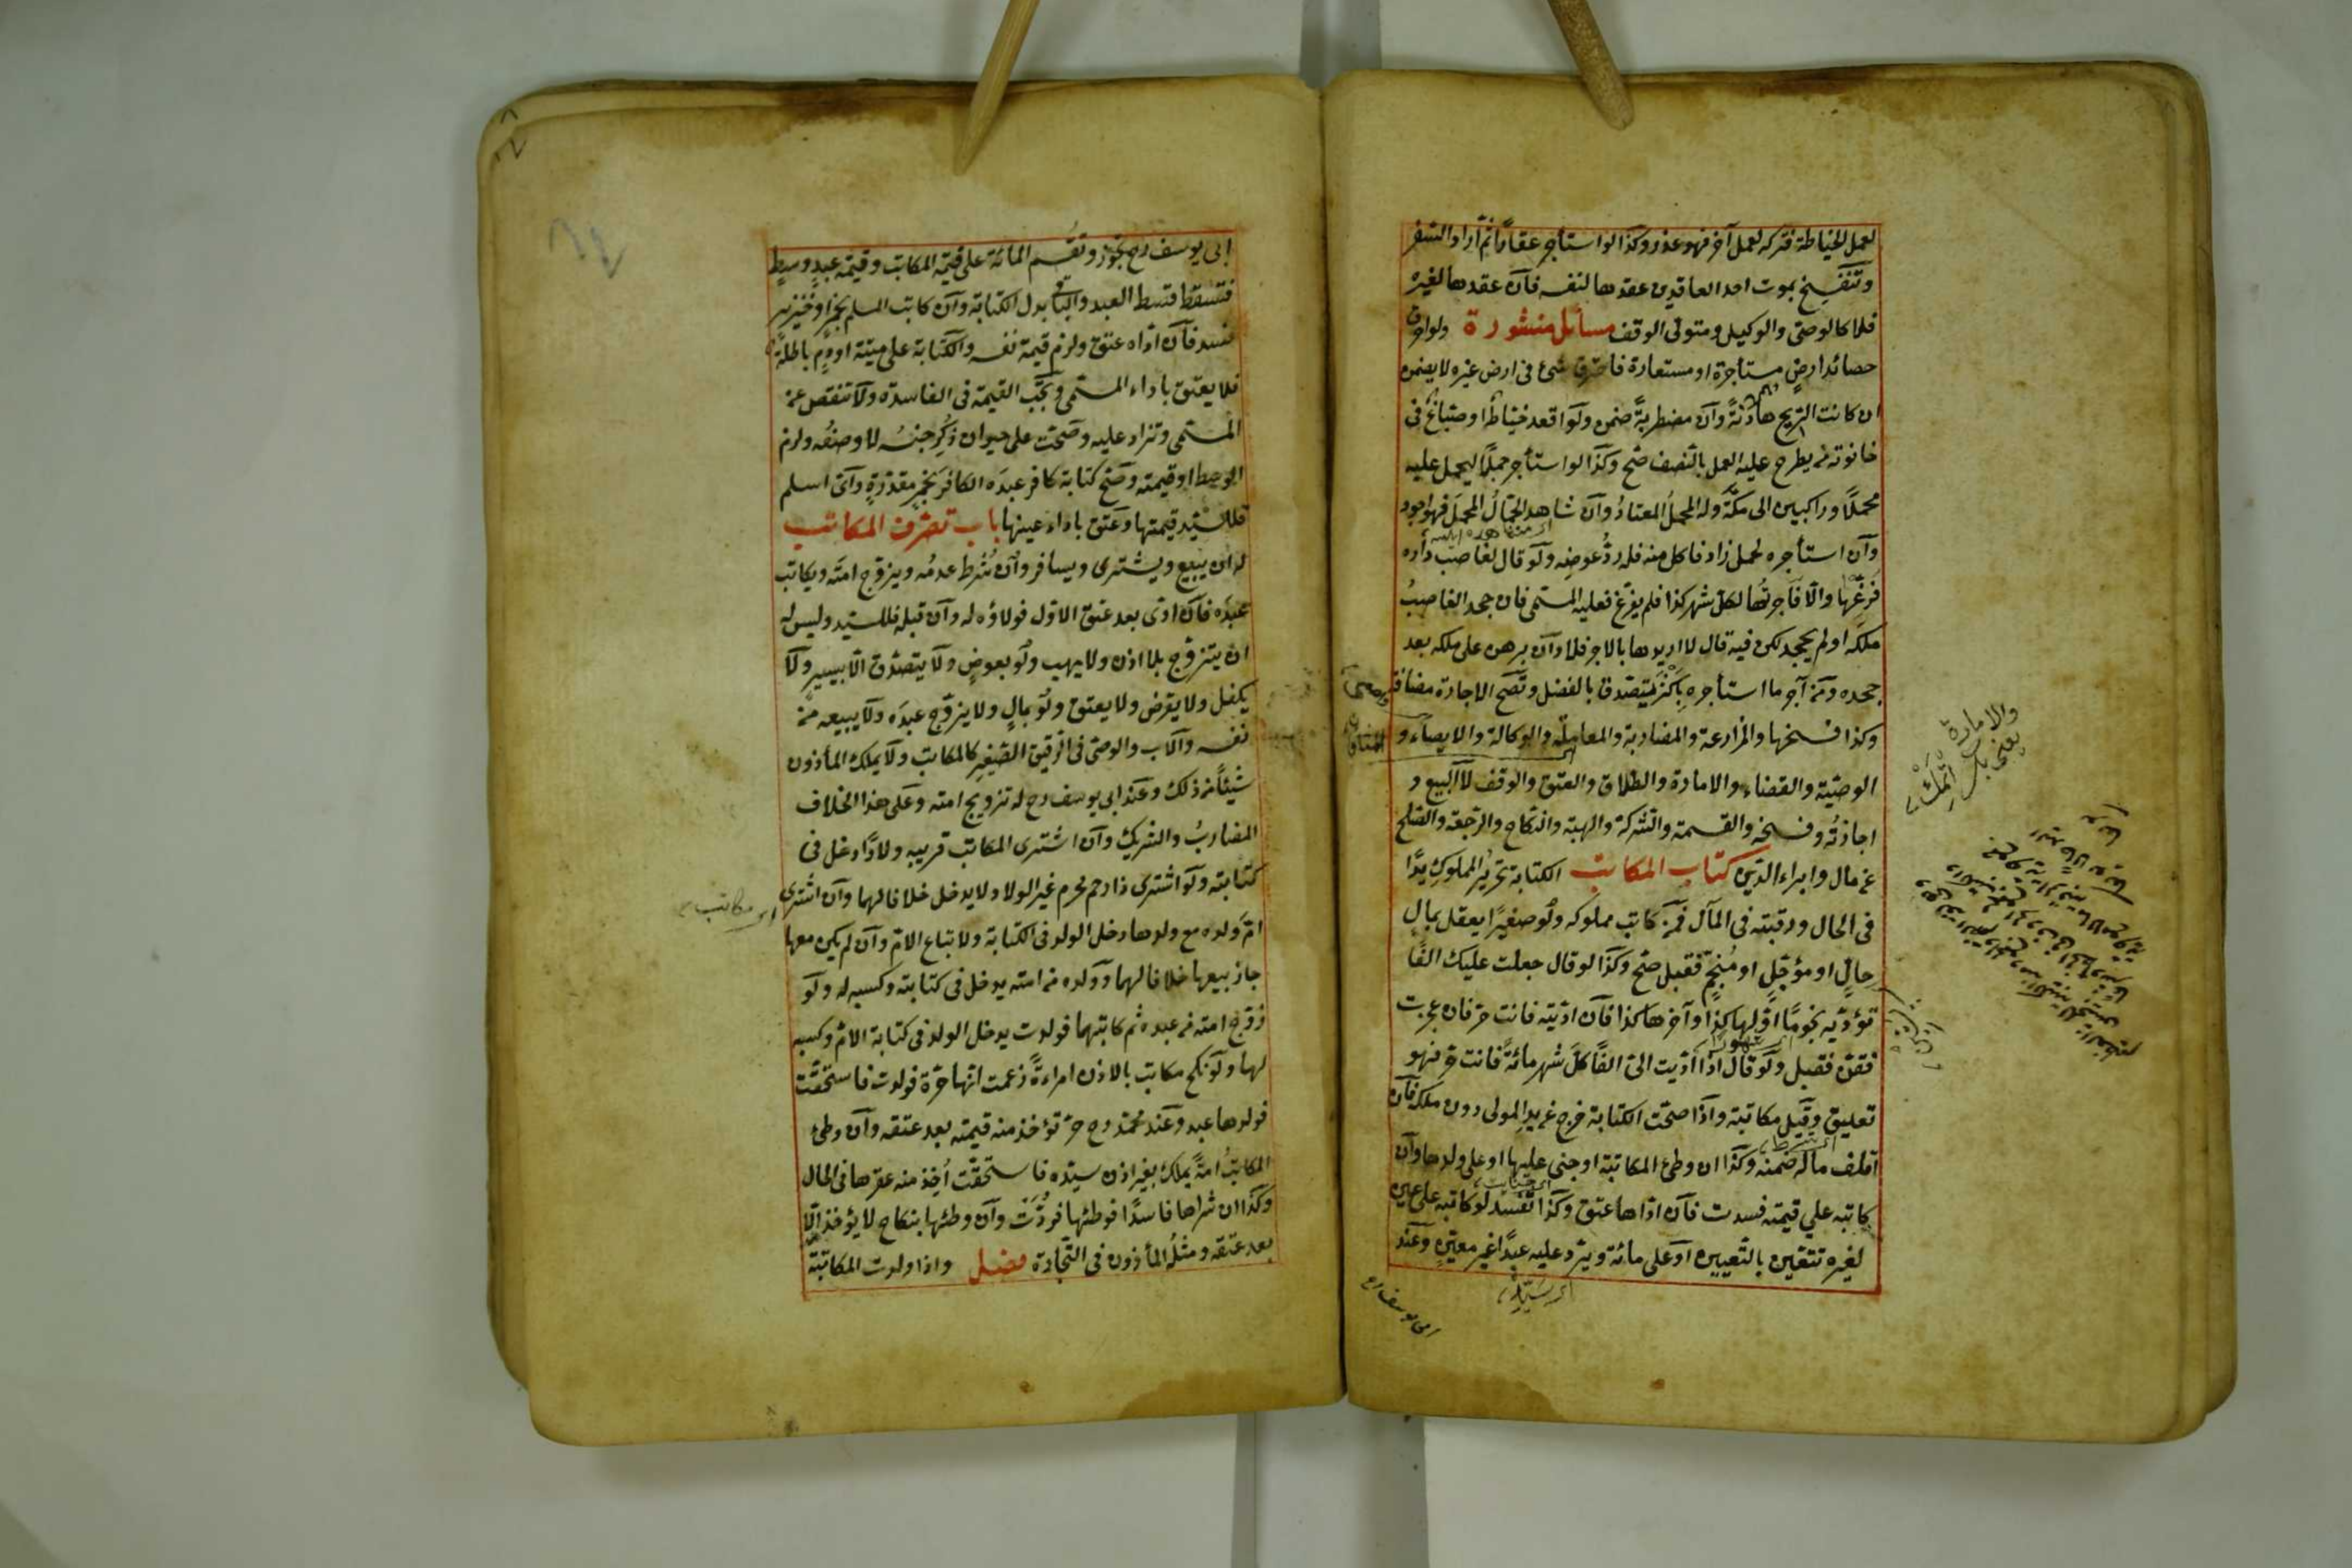 لعمل الخياطة فتركه لعمل آخر فهو عذر وكذا لو استأجر عقارًا ثم اراد السفر
وتنفسخ بموت احد العاقدين عقدها لنفسه فان عقدها لغيره
فلا كالوصى والوكيل ومتولى الوقف مسائل منثورة ولو احرق
حصائد ارض مستأجرة او مستعارة فاحترق شئ فى ارض غيره لا يضمن
ان كانت الريح هادنة وان مضطربة ضمن ولو اقعد خياط او صباغ فى
حانوته من يطرح عليه العمل بالنصف صح وكذا لو استأجر جملا ليحمل عليه
محملا وراكبين الى مكة وله المحمل المعتاد وان شاهد الجمال المحمل فهو اجود
وان استأجره لحمل زاد فاكل منه فله رد عوضه ولو قال لغاصب داره
فرغها والا فاجرتها لكل شهر كذا فلم يفرغ فعليه المسمى فان جحد الغاصب
ملكه او لم يجحد لكن فيه قال لا اريدها بالاجر فلا وان برهن على ملكه بعد
جحده ومن آجر ما استأجره باكثر يتصدق بالفضل وتصح الاجارة مضافة
وكذا فسخها والمزارعة والمضاربة والمعاملة والوكالة والايصاء و
الوصية والقضاء والامارة والطلاق والعتق والوقف لا البيع و
اجازته وفسخه والقسمة والشركة والهبة والنكاح والرجعة والصلح
عن مال وابراء الدين كتاب المكاتب الكتابة تحرير المملوك يدًا
فى الحال ورقبته فى المآل فمن كاتب مملوكه ولو صغيرًا يعقل بمال
حال او مؤجل او منجم فقبل صح وكذا لو قال جعلت عليك الفًا
تؤديه نجومًا اولها كذا وآخرها كذا فان اديته فانت حر فان عجزت
فقن فقبل ولو قال اذا اديت الى الفًا كل شهر مائة فانت حر فهو
تعليق وقيل مكاتبة واذا صحت الكتابة خرج عن يد المولى دون ملكه فان
اتلف ماله ضمنه وكذا ان وطئ المكاتبة او جنى عليها او على ولدها وان
كاتبه على قيمته فسدت فان اداها عتق وكذا تفسد لو كاتبه على عين
لغيره تتعين بالتعيين او على مائة ويرد عليه عبدًا غير معين وعند
والامارة
يعنى
اى شرط
اى سيد
ابى يوسف رح
ابى يوسف رح تجوز وتقسم المائة على قيمة المكاتب وقيمة عبد وسط
فتسقط قسط العبد والباقى بدل الكتابة وان كاتب المسلم بخمر او خنزير
فسد فان اداه عتق ولزم قيمة نفسه والكتابة على ميتة او دم باطلة
فلا يعتق باداء المسمى وتجب القيمة فى الفاسدة ولا تنقص عن
المسمى وتزاد عليه وصحت على حيوان ذكر جنسه لا وصفه ولزم
الوسط او قيمته وصح كتابة كافر عبده الكافر بخمر مقدرة واى اسلم
فللسيد قيمتها وعتق باداء عينها باب تصرف المكاتب
له ان يبيع ويشترى ويسافر وان شرط عدمه ويزوج امته ويكاتب
عبده فان ادى بعد عتق الاول فولاؤه له وان قبله فللسيد وليس له
ان يتزوج بلا اذن ولا يهب ولو بعوض ولا يتصدق الا بيسير ولا
يكفل ولا يقرض ولا يعتق ولو بمال ولا يزوج عبده ولا يبيعه من
نفسه والاب والوصى فى رقيق الصغير كالمكاتب ولا يملك المأذون
شيئًا من ذلك وعند ابى يوسف رح له تزويج امته وعلى هذا الخلاف
المضارب والشريك وان اشترى المكاتب قريبه ولادًا دخل فى
كتابته ولو اشترى ذا رحم محرم غير الولاد لا يدخل خلافا لهما وان اشترى
ام ولده مع ولدها دخل الولد فى الكتابة ولا تباع الام وان لم يكن معها
جاز بيعها خلافا لهما وولده من امته يدخل فى كتابته وكسبه له ولو
زوج امته من عبده ثم كاتبهما فولدت يدخل الولد فى كتابة الام وكسبه
لها ولو نكح مكاتب بالاذن امراءة زعمت انها حرة فولدت فاستحقت
فولدها عبد وعند محمد رح حر تؤخذ منه قيمته بعد عتقه وان وطئ
المكاتب امة بملك بغير اذن سيده فاستحقت اخذ منه عقرها فى الحال
وكذا ان شراها فاسدًا فوطئها فردت وان وطئها بنكاح لا يؤخذ الا
بعد عتقه ومثله المأذون فى التجارة فصل واذا ولدت المكاتبة
اى مكاتب